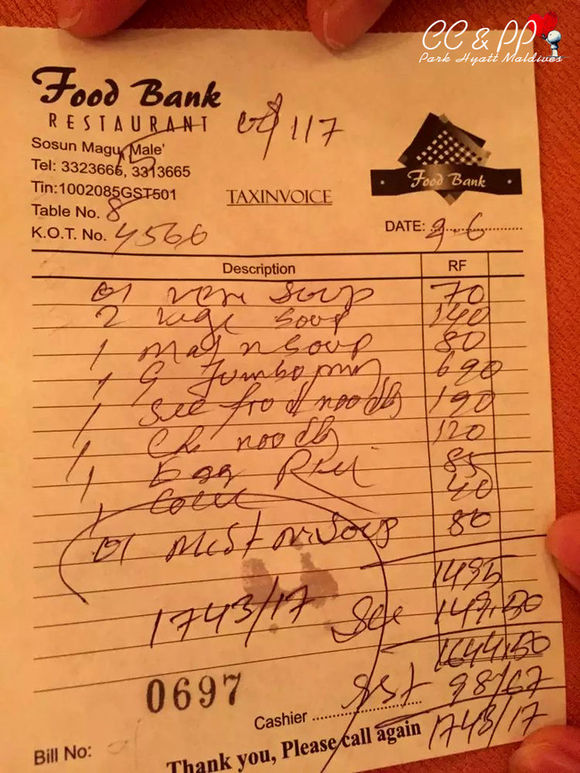 CC & PP
Park Hyatt Maldives
Food Bank
RESTAURANT
Sosun Magu, Male'
Tel: 3323666, 3313665
Tin:1002085GST501
TAXINVOICE
Food Bank
Table No. 8
K.O.T. No. 4566
DATE: 9-6
Description RF
01 Soup 70
2 Soup 140
1 Soup 80
1 G Jumbo 690
1 See food noodls 190
1 Ch noodls 120
1 Egg Rice 85
1 40
01 Soup 80
1495
149.50
1644.50
1743/17
0697
Gst 98/67
Cashier
1743/17
Bill No:
Thank you, Please call again